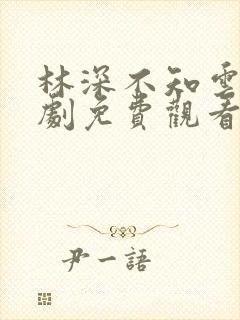 林深不知雲
劇免費觀看
尹一語